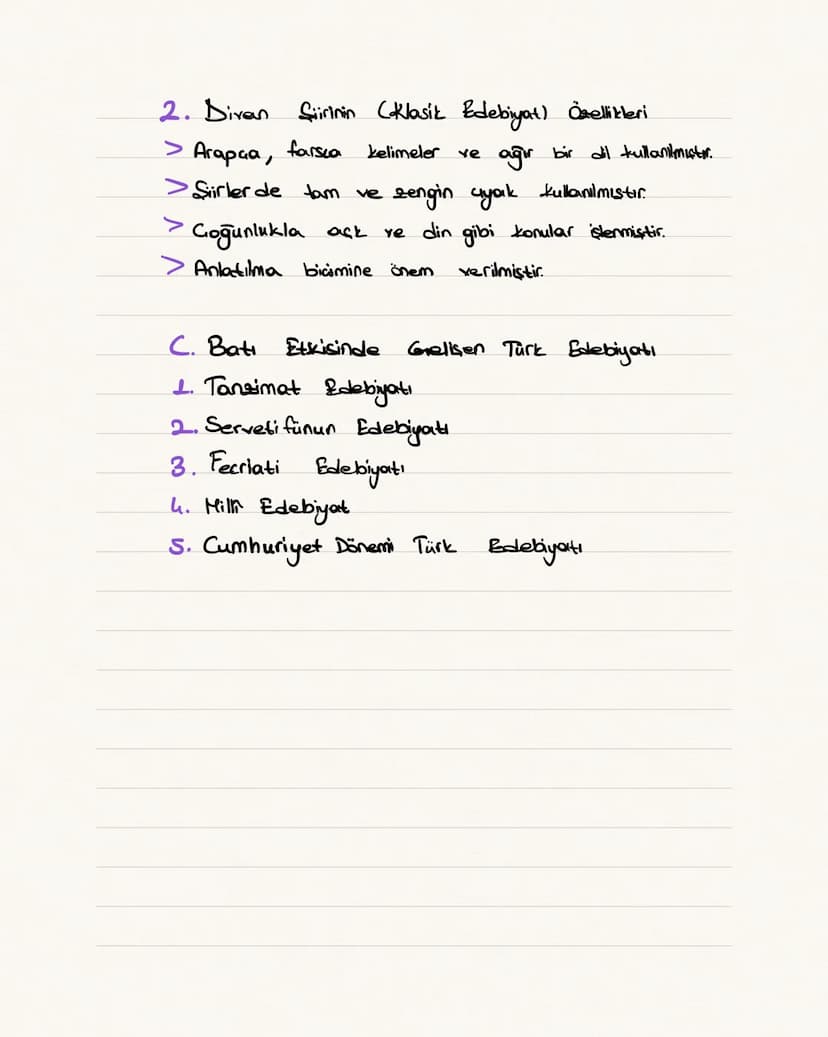 2. Divan Şiirinin (Klasik Edebiyat) Özellikleri
> Arapça, farsça kelimeler ve ağır bir dil kullanılmıştır.
> Şiirlerde tam ve zengin uyak kullanılmıştır.
> Çoğunlukla aşk ve din gibi konular işlenmiştir.
> Anlatılma biçimine önem verilmiştir.
C. Batı Etkisinde Gelişen Türk Edebiyatı
1. Tanzimat Edebiyatı
2. Servetifünun Edebiyatı
3. Fecriati Edebiyatı
4. Milli Edebiyat
5. Cumhuriyet Dönemi Türk Edebiyatı